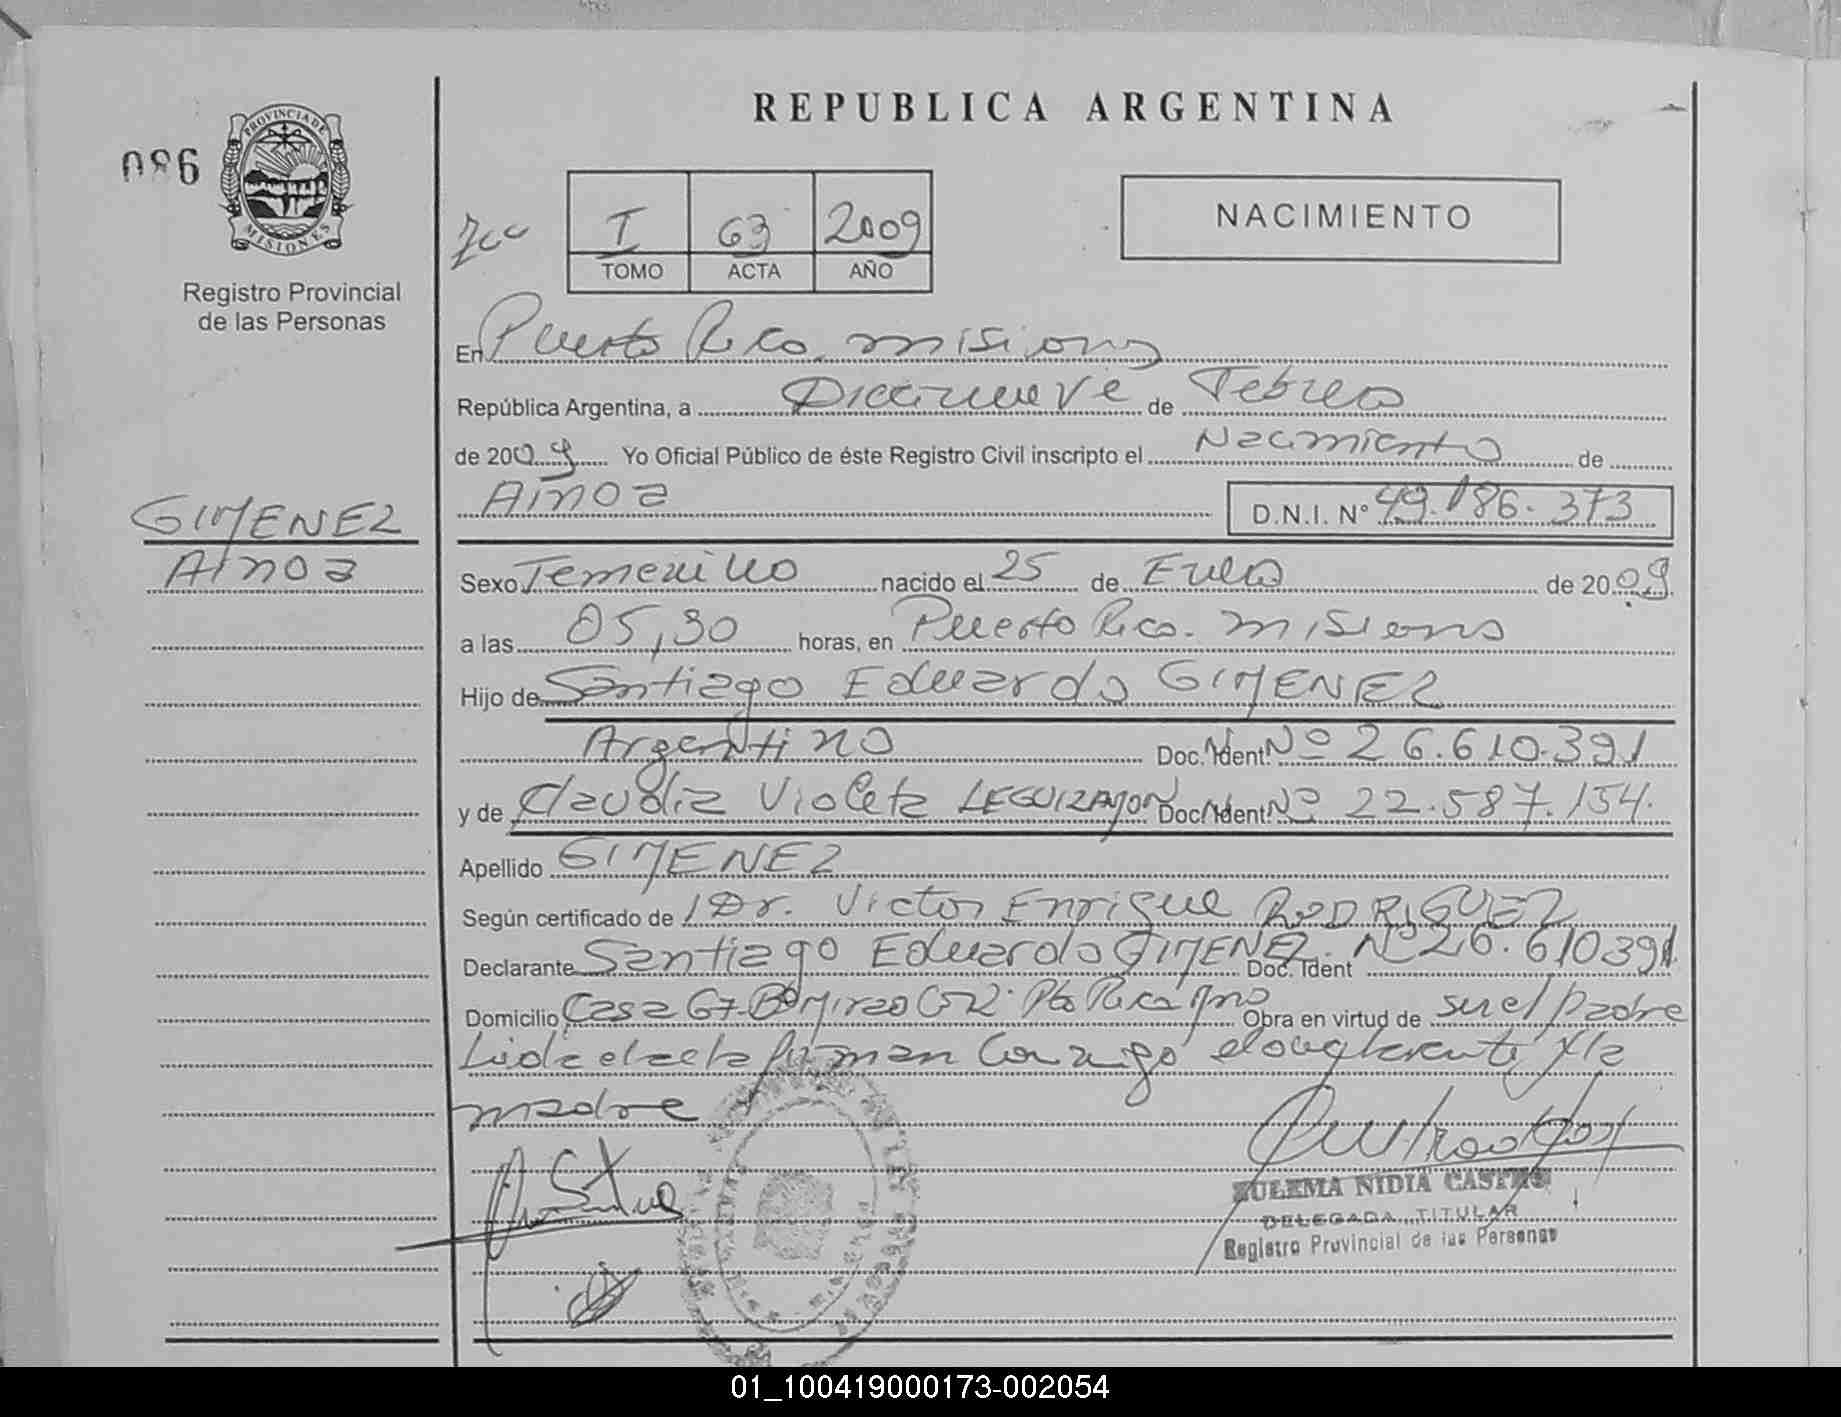 REPUBLICA ARGENTINA
086
PROVINCIA DE
MISIONES
Registro Provincial
de las Personas
I 63 2009
TOMO ACTA AÑO
NACIMIENTO
En Puerto Rico misiones
República Argentina, a Diecinueve de Febrero
de 2009 Yo Oficial Público de éste Registro Civil inscripto el Nacimiento de
Ainoa D.N.I. N° 49.186.373
GIMENEZ
Ainoa
Sexo Femenino nacido el 25 de Enero de 2009
a las 05,30 horas, en Puerto Rico. misiones
Hijo de Santiago Eduardo GIMENEZ
Argentino Doc. Ident. Nº 26.610.391
y de Claudia Violeta LEGUIZAMON Doc. Ident. Nº 22.587.154.
Apellido GIMENEZ
Según certificado de Dr. Victor Enrique RODRIGUEZ
Declarante Santiago Eduardo GIMENEZ. Doc. Ident Nº 26.610391
Domicilio Casa 67 Pto Rico Mnes Obra en virtud de ser el padre
Leida el acta firman Conmigo el declarante y la
madre
ZULEMA NIDIA CASTRO
DELEGADA TITULAR
Registro Provincial de las Personas
01_100419000173-002054